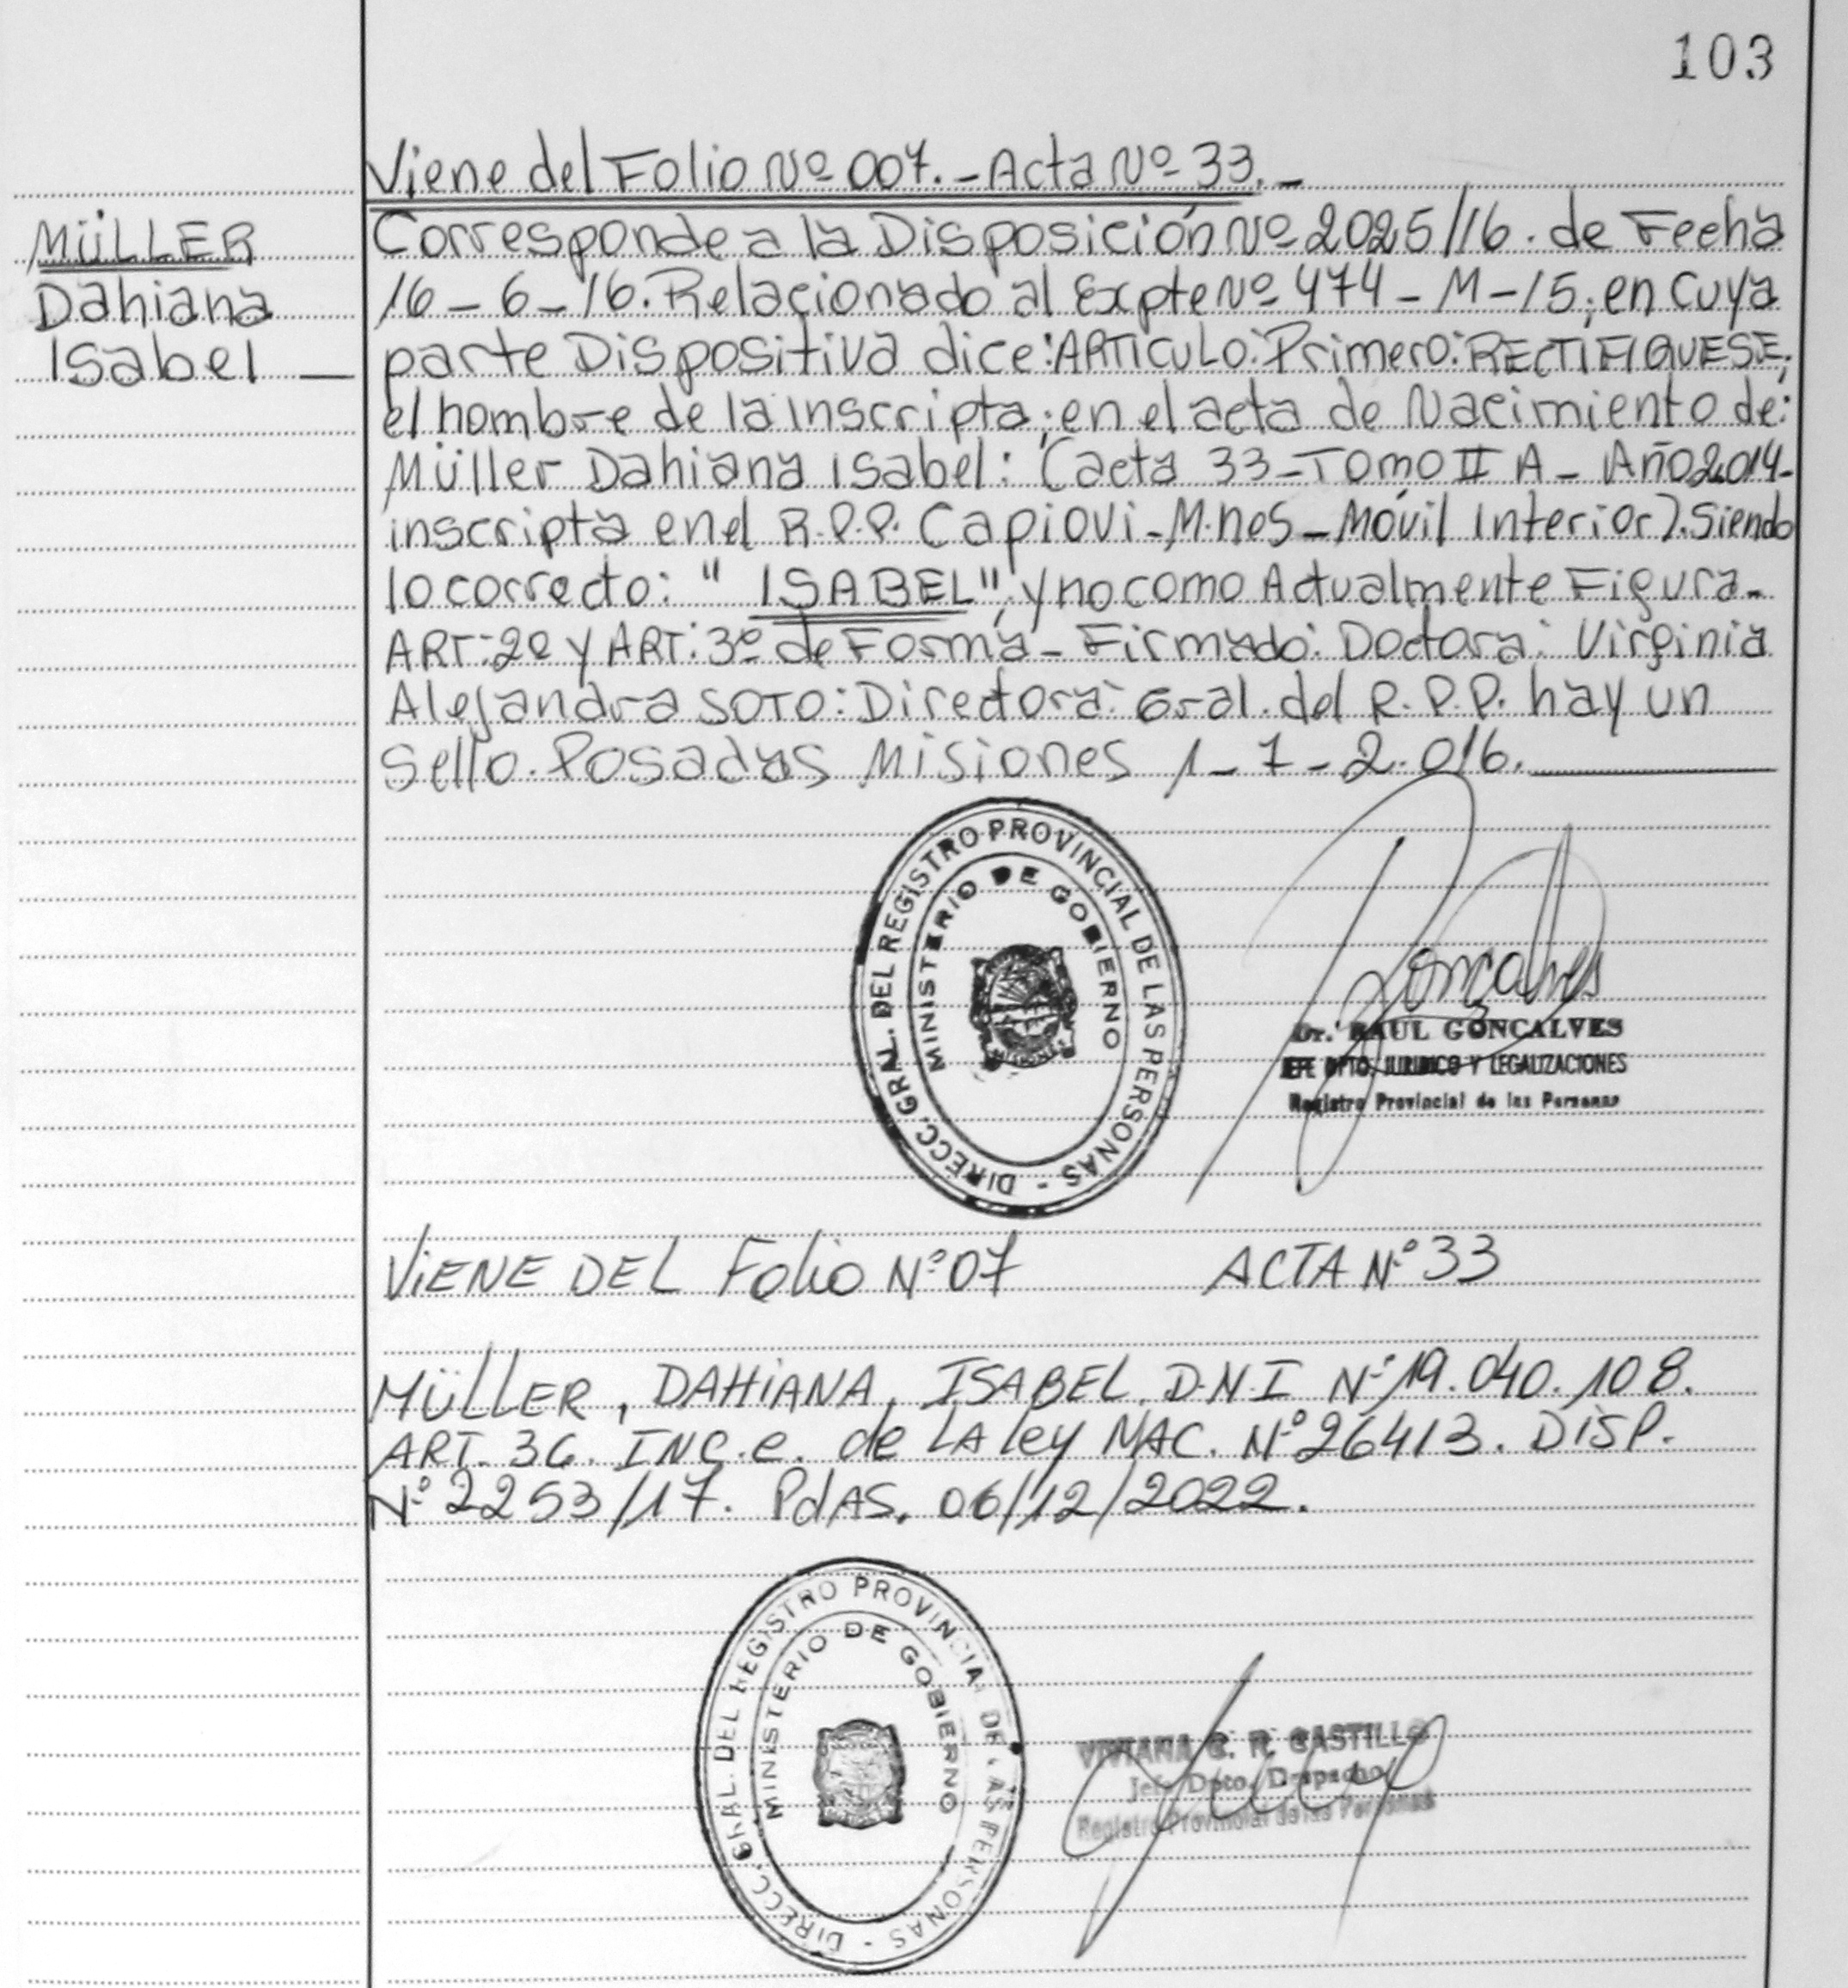 103
Viene del Folio Nº 007. - Acta Nº 33. -
MÜLLER
Dahiana
Isabel —
Corresponde a la Disposición Nº 2025/16. de Fecha
16 - 6 - 16. Relacionado al Expte Nº 474 - M - 15; en cuya
parte Dispositiva dice: ARTICULO: Primero: RECTIFIQUESE;
el nombre de la inscripta; en el acta de Nacimiento de:
Müller Dahiana Isabel: (acta 33 - Tomo II A - Año 2.014-
inscripta en el R.P.P. Capiovi - M.nes - Móvil Interior). Siendo
lo correcto: " ISABEL", y no como Actualmente Figura-
ART: 2º y ART: 3º de Forma - Firmado: Doctora: Virginia
Alejandra SOTO: Directora: Gral. del R.P.P. hay un
Sello. Posadas Misiones 1 - 7 - 2.016.
DIRECC. GRAL. DEL REGISTRO PROVINCIAL DE LAS PERSONAS -
MINISTERIO DE GOBIERNO
MISIONES
Gonçalves
Dr. RAUL GONCALVES
JEFE DPTO. JURIDICO Y LEGALIZACIONES
Registro Provincial de las Personas
VIENE DEL Folio Nº 07 ACTA Nº 33
MÜLLER, DAHIANA, ISABEL. D.N.I Nº 19.040.108.
ART. 36. INC.e. de LA ley NAC. Nº 26413. DISP.
Nº 2253/17. PdAS. 06/12/2022.
DIRECC. GRAL. DEL REGISTRO PROVINCIAL DE LAS PERSONAS -
MINISTERIO DE GOBIERNO
VIVIANA C. R. CASTILLO
Jefe Dpto. Despacho
Registro Provincial de las Personas